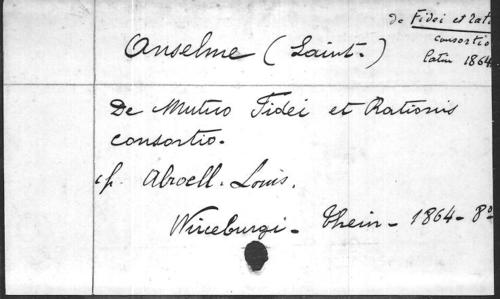 de Fidei et Rat.
consortio
latin 1864.
Anselme (Saint-)
De Mutuo Fidei et Rationis
consortio.
cf. Abroell. Louis.
Wirceburgi - Thein - 1864 - 8º